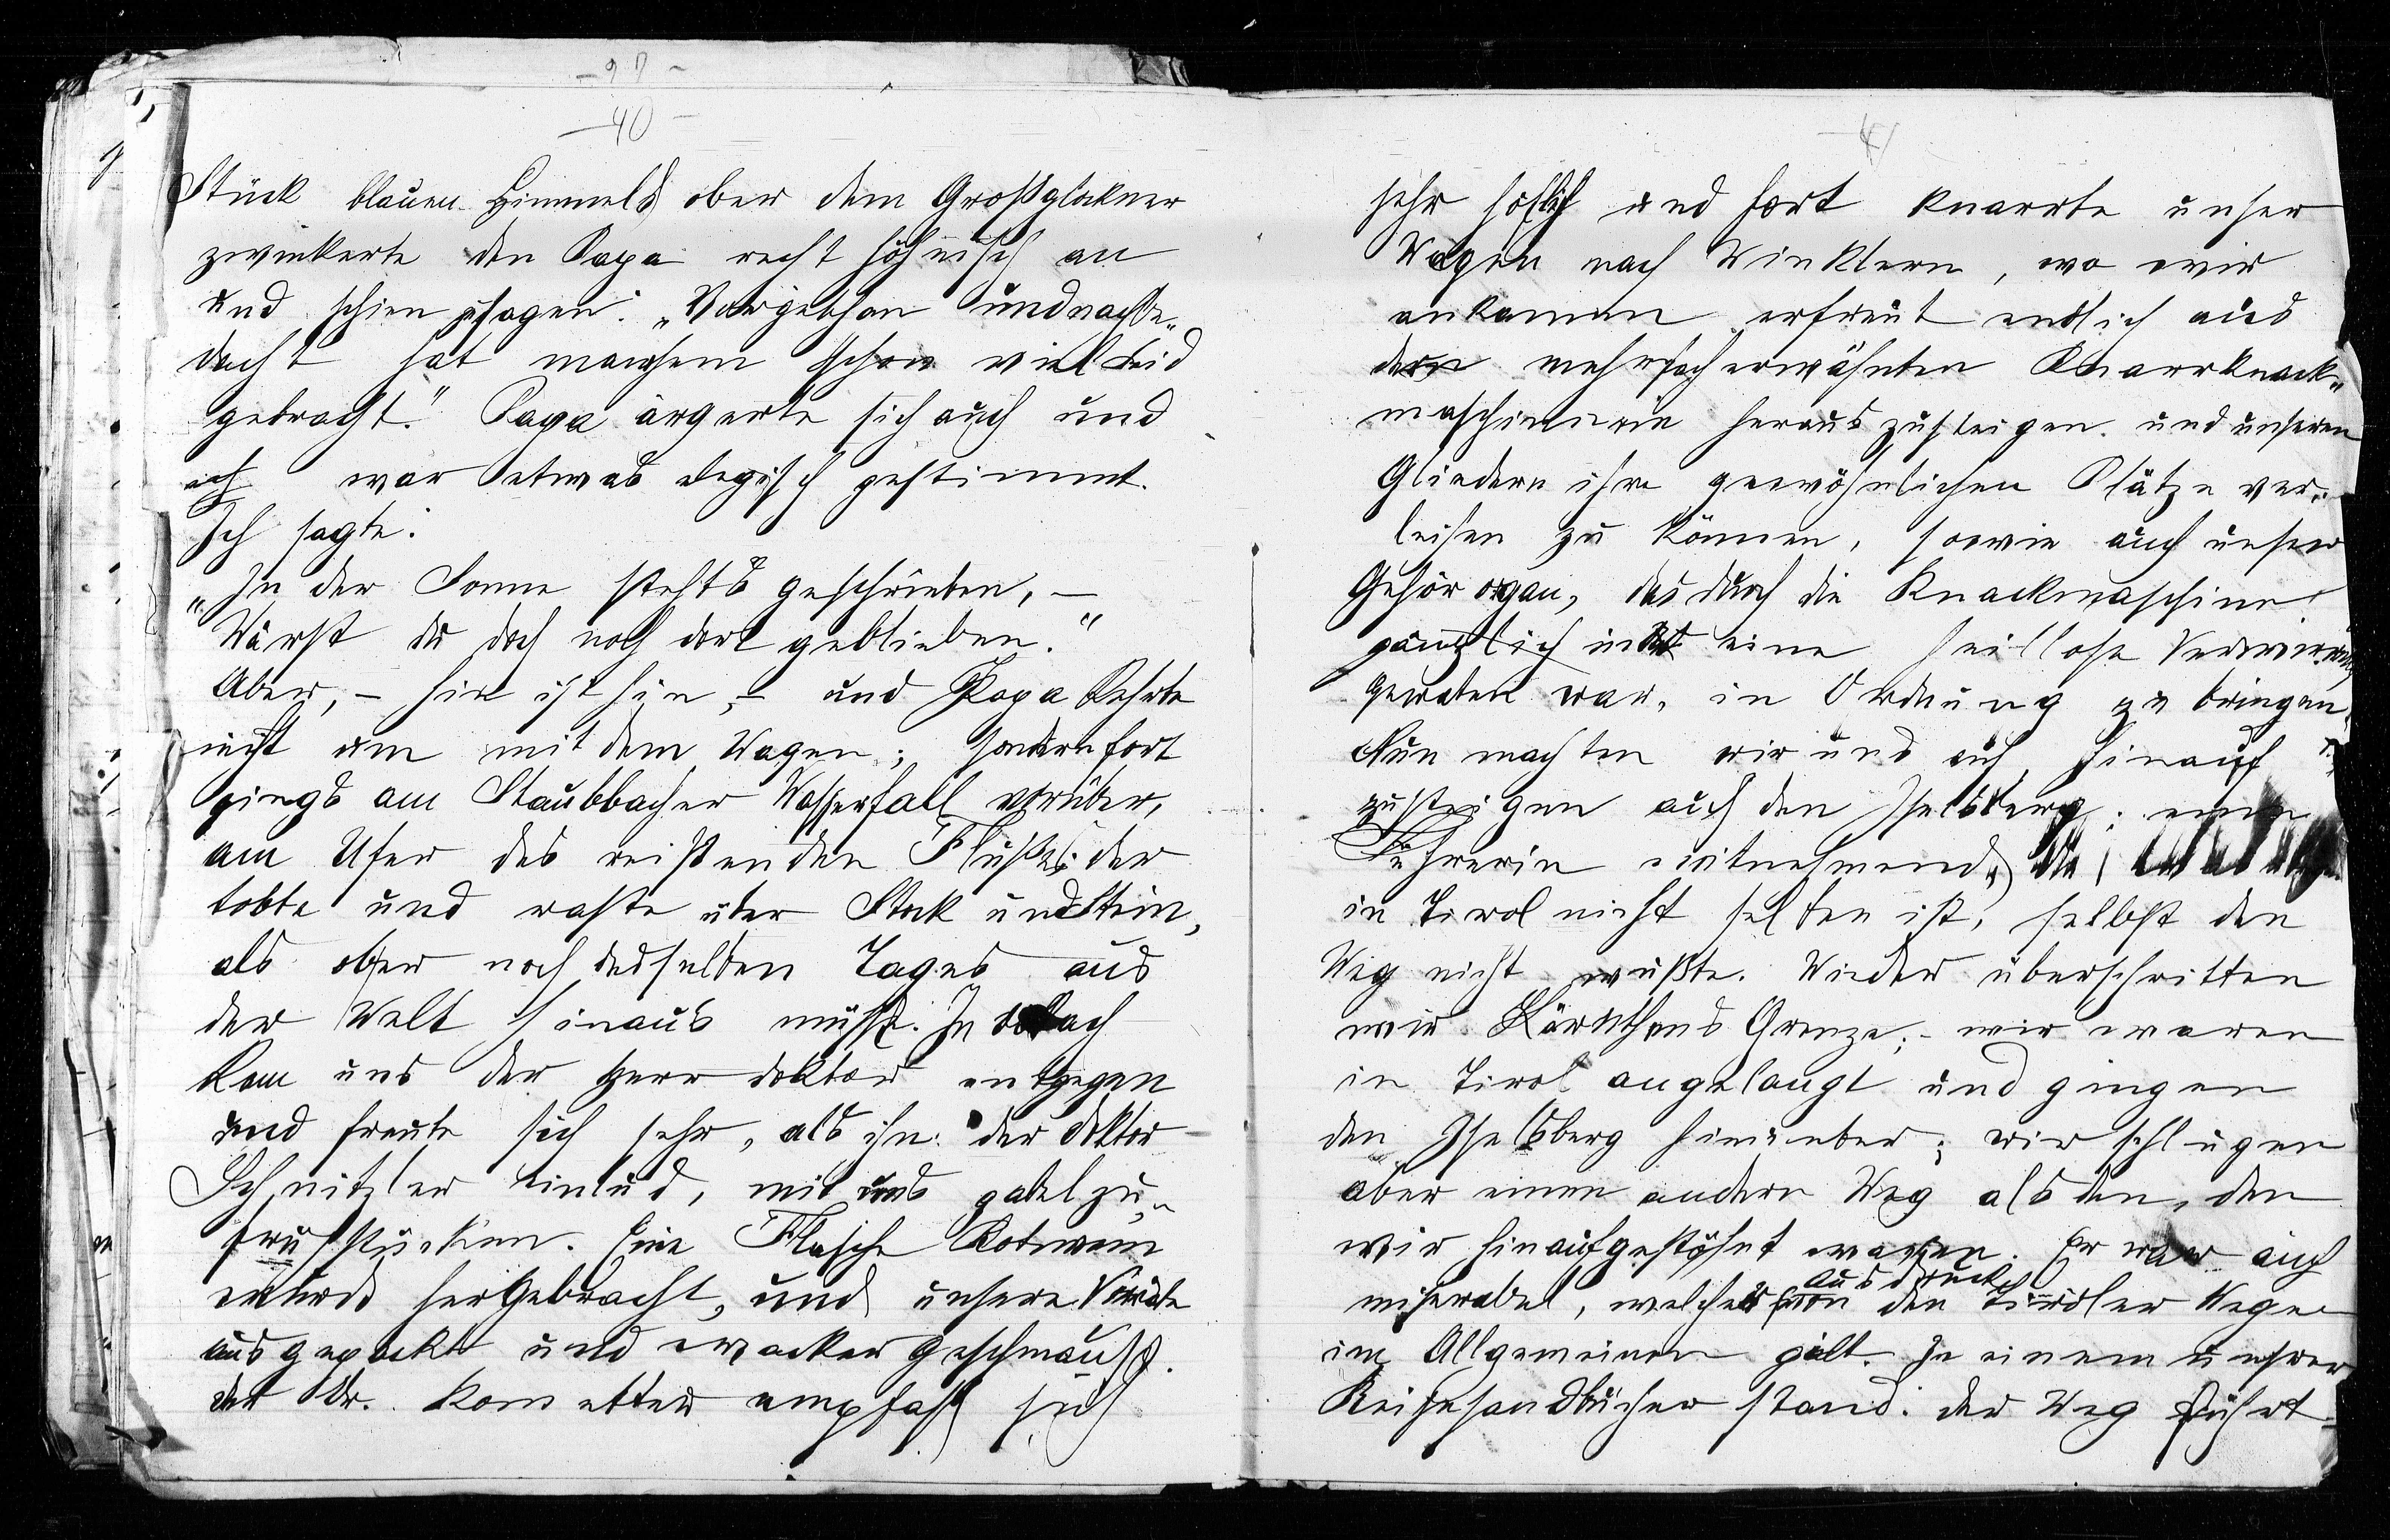 - 40 -
Stück blauen Himmels ober dem Großglockner
zwinkerte den Papa recht höhnisch an
und schien zu sagen: „Vorgethan und nachbe-
dacht hat manchem schon viel Leid
gebracht." Papa ärgerte sich auch und
ich war etwas elegisch gestimmt.
Ich sagte:
„In der Sonne steht's geschrieben, –
Wärst du doch noch dort geblieben."
Aber, – hin ist hin, – und Papa kehrte
nicht um mit dem Wagen; sondern fort
gings am Staubbacher Wasserfall vorüber,
am Ufer des reißenden Flußes der
tobte und raste über Stock und Stein,
als ob er noch desselben Tages aus
der Welt hinaus müsse. In
kam uns der Herr Doktor entgegen
und freute sich sehr, als ihn der Doktor
Schnitzler einlud, mit uns gabelzu-
frühstücken. Eine Flasche Rotwein
wurde hergebracht, und unsere Vorräte
ausgepackt und wacker geschmaust.
der Dr. Kometter empfahl sich
41
sehr höflich und fort knarrte unser
Wagen nach Winklern, wo wir
ankamen erfreut endlich aus
der mehrfach erwähnten Knarrknack-
maschinerie herauszusteigen und unseren
Gliedern ihre gewöhnlichen Plätze ver-
leihen zu können, sowie auch unser
Gehörorgan, das durch die Knackmaschine
gänzlich in eine heillose Verwirrung
geraten war, in Ordnung zu bringen.
Nun machten wir uns auf, hinauf
zusteigen auf den Iselsberg; eine
Führerin mitnehmend, die
in Tirol nicht selten ist, selbst den
Weg nicht wußte. Wieder überschritten
wir Kärnthens Grenze; – wir waren
in Tirol angelangt und gingen
den Iselsberg hinüber; wir schlugen
aber einen andern Weg als den, den
wir hinaufgestöhnt waren. Er war auch
Ausdruck
miserabel, welcher von den Tiroler Wegen
im Allgemeinen gilt. In einem unserer
Reisehandbücher stand: der Weg führt